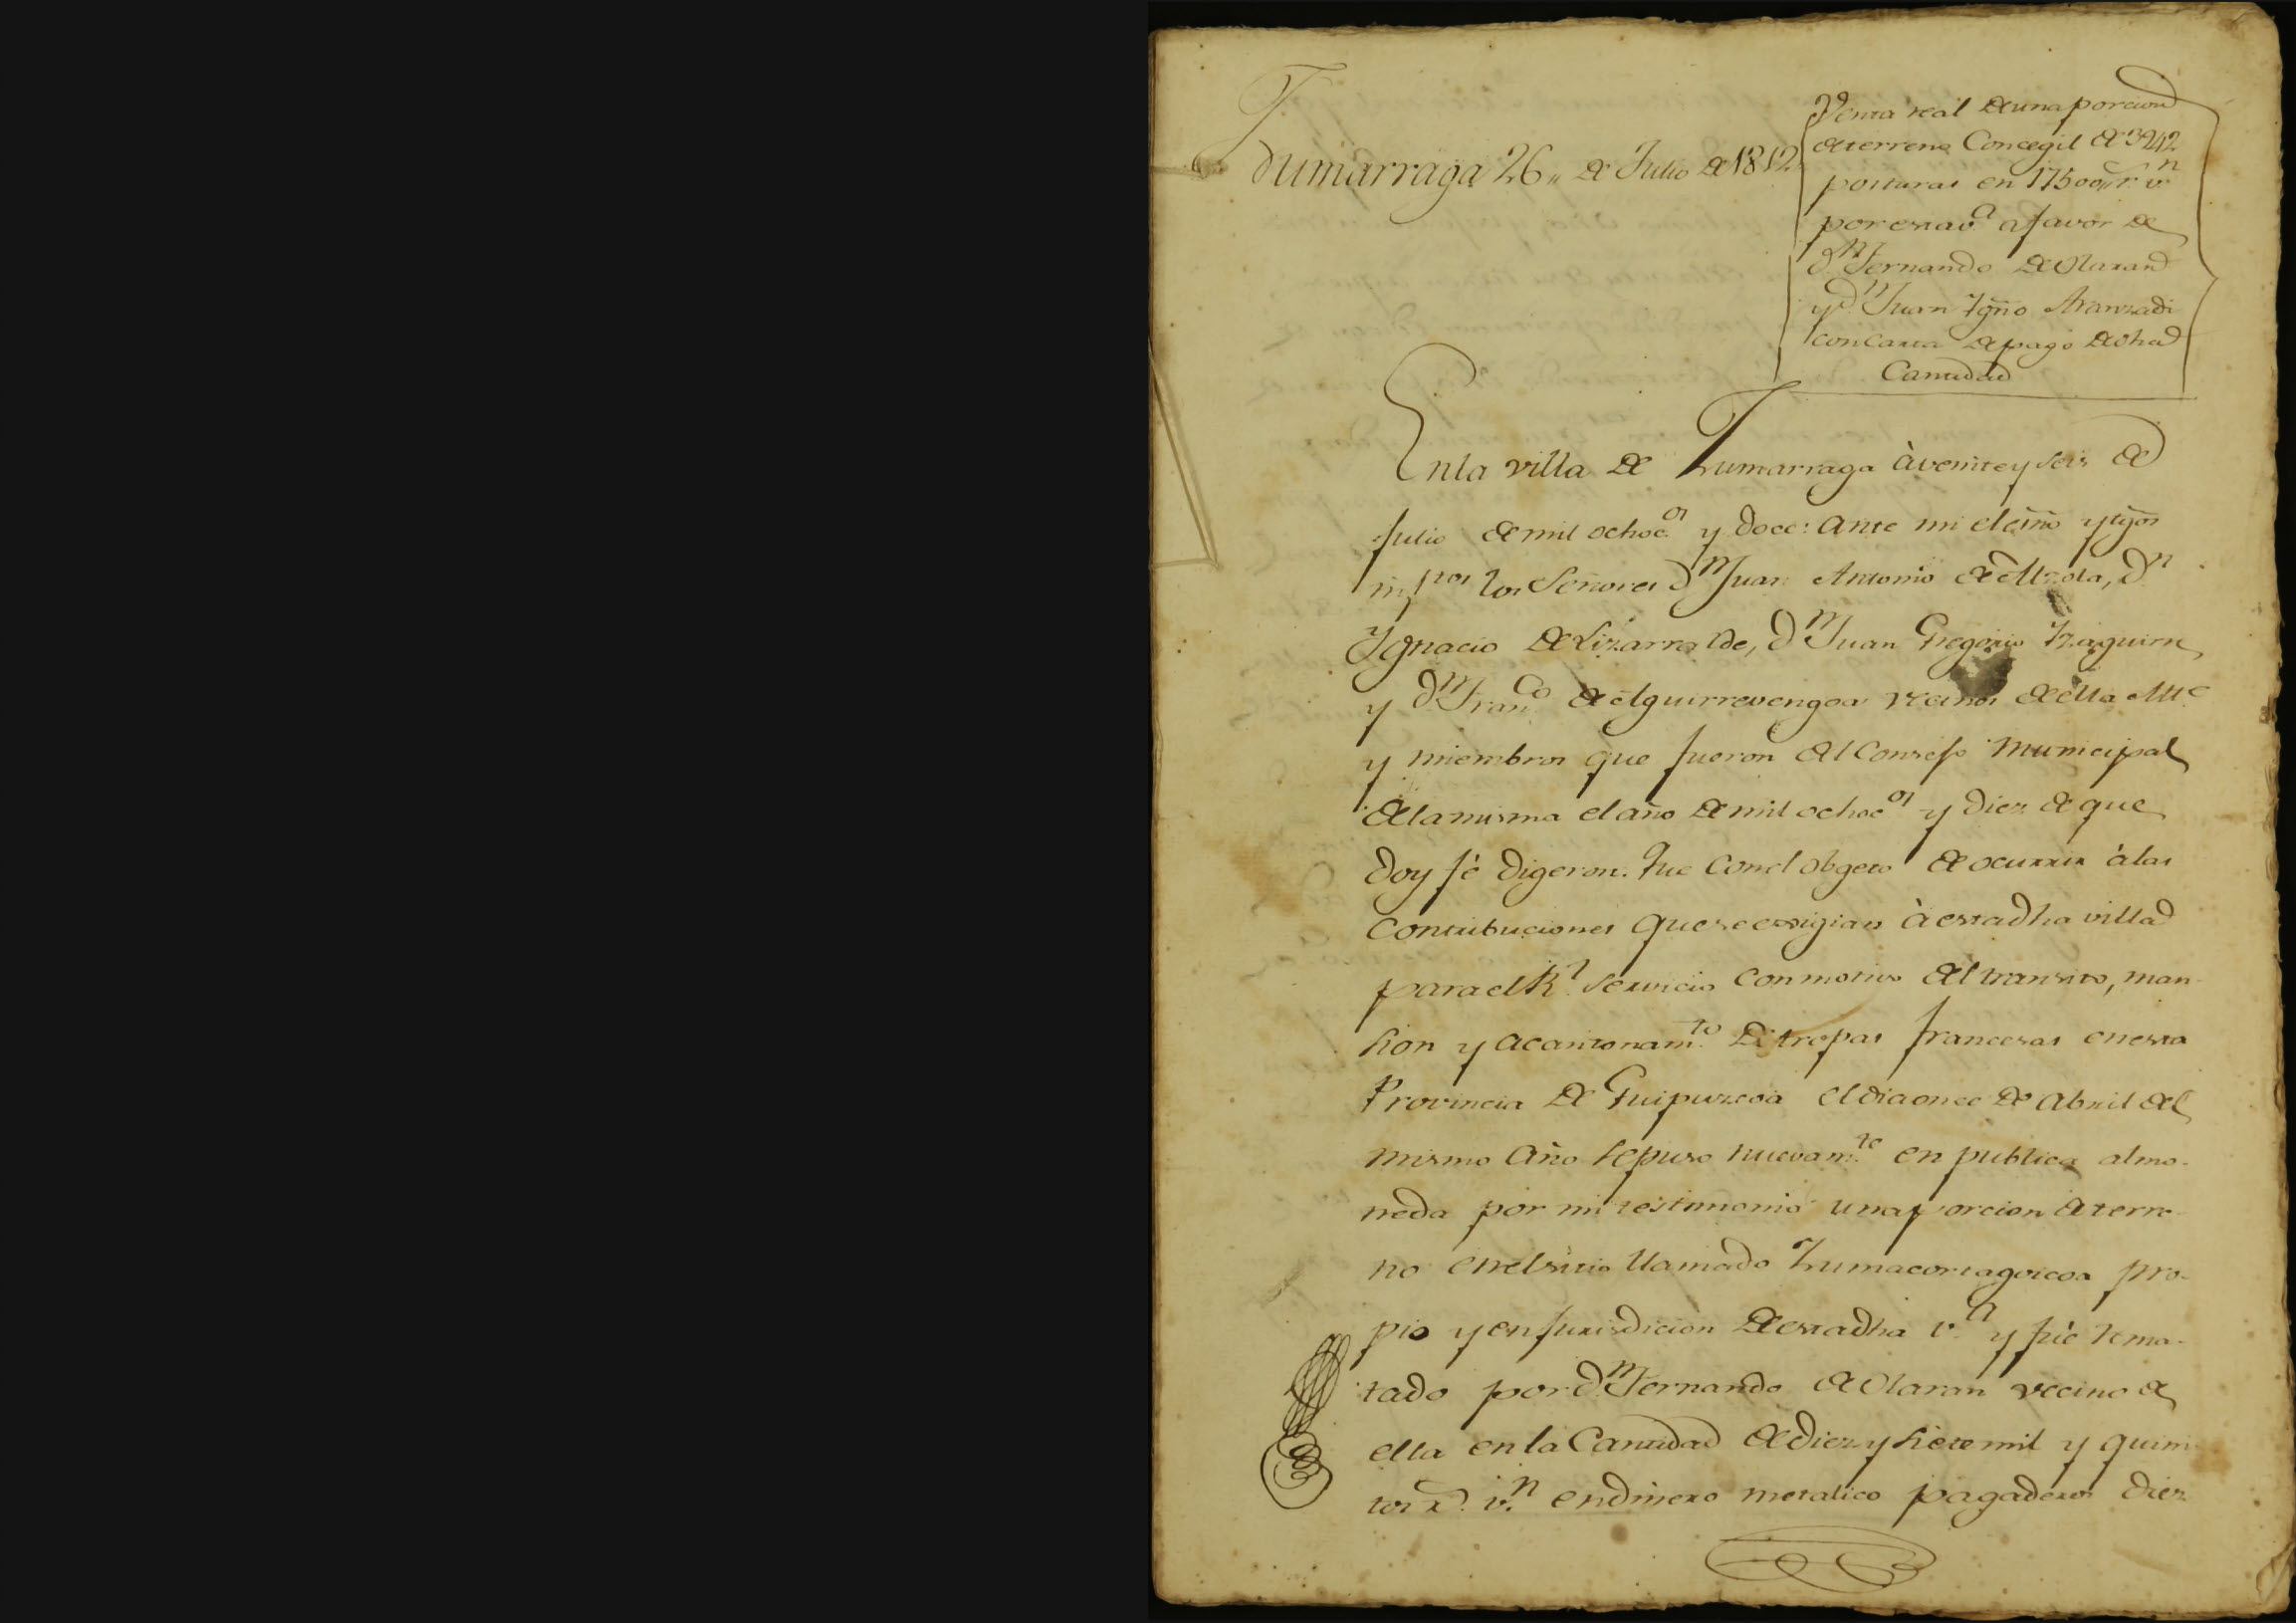 Zumarraga 26,, de Julio de 1812
Venta real de una porcion
de terreno Concegil de 3242
posturas en 17500,, r.^s v.^n
por esta v.^a a favor de
d.^n Fernando de Olaran
y d.^n Juan Ygño Aranzadi
con carta de pago de dha
Cantidad
En la villa de Zumarraga à veinte y seis de
Julio de mil ochoc.^os y doce: ante mi el esño y tgõs
infros los Señores d.^n Juan Antonio de Alzola, d.^n
Ygnacio de Lizarralde, d.^n Juan Gregorio Yzaguirre
y d.^n Fran.^co de Aguirrevengoa vecinos de ella
y miembros que fueron del Consejo Municipal
de la misma el año de mil ochoc.^os y diez de que
doy fè digeron: Que con el obgeto de ocurrir à las
Contribuciones que se exsigian à esta dha villa
para el R.^l Servicio con motivo del transito, man-
sion y acantonam.^to de tropas francesas en esta
Provincia de Guipuzcoa el dia once de Abril del
mismo año se puso nuevam.^te en publica almo-
neda por mi testimonio una porcion de terre-
no en el sitio llamado Zumacortagoicoa pro-
pio y en jurisdicion de esta dha v.^a y fuè rema-
tado por d.^n Fernando de Olaran vecino de
ella en la Cantidad de diez y siete mil y quinien
tos r.^s v.^n en dinero metalico pagaderos diez